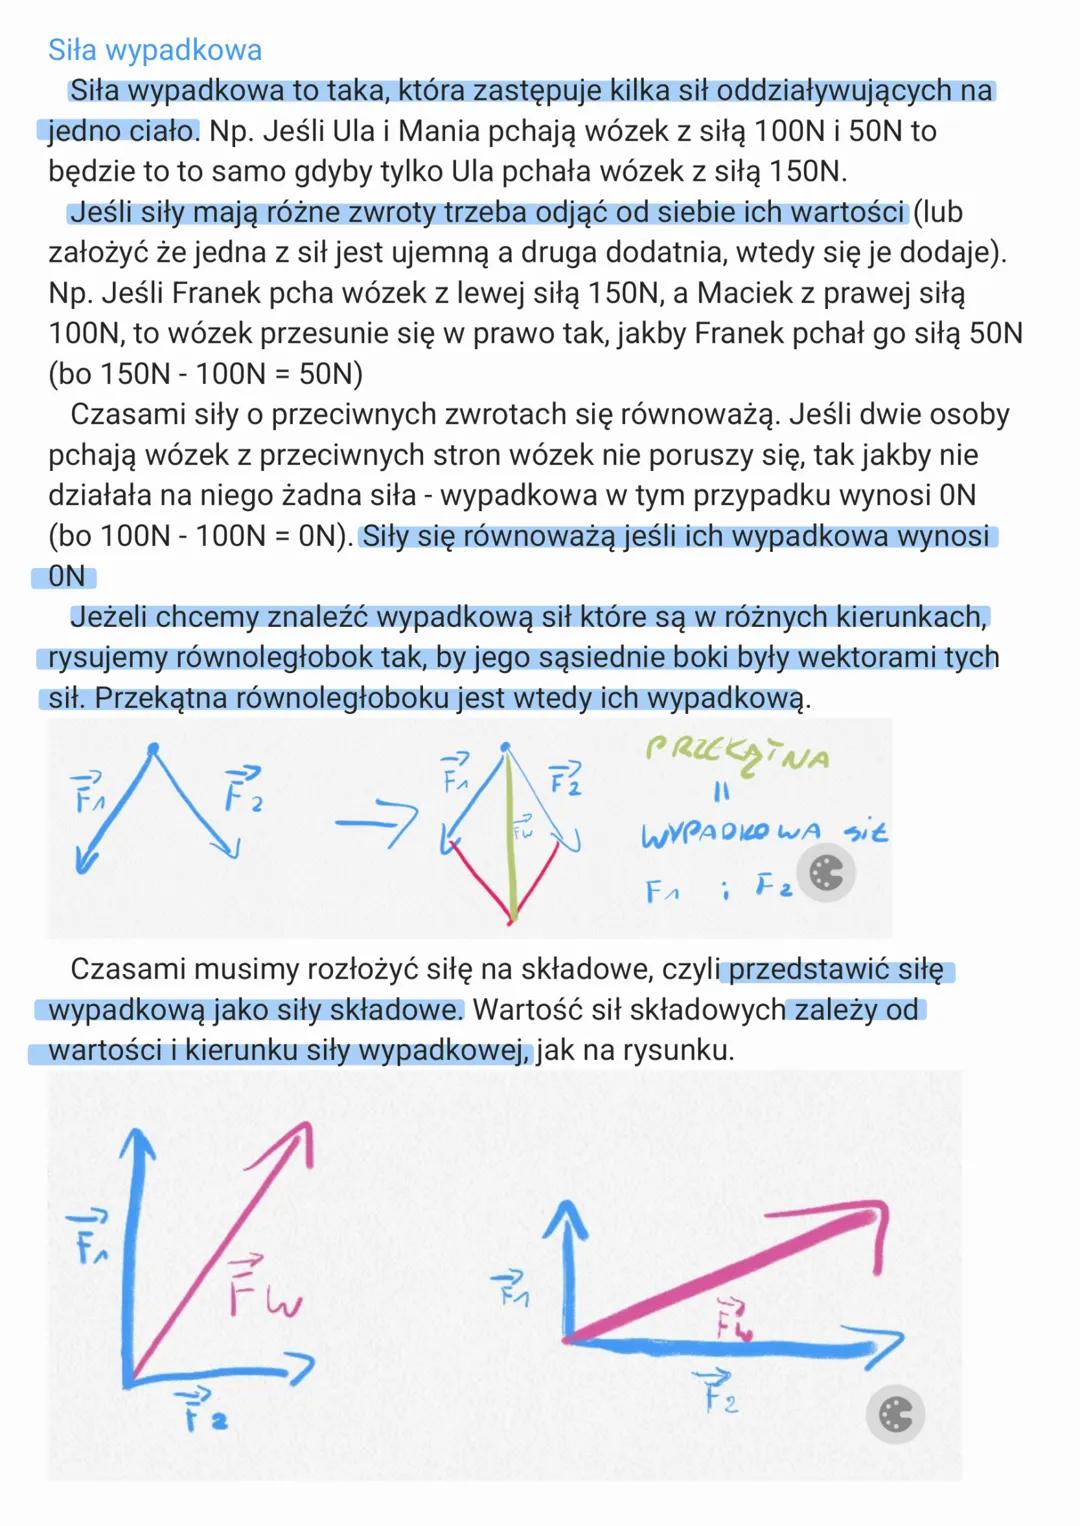 Siła wypadkowa
Siła wypadkowa to taka, która zastępuje kilka sił oddziaływujących na
jedno ciało. Np. Jeśli Ula i Mania pchają wózek z siłą 100N i 50N to
będzie to to samo gdyby tylko Ula pchała wózek z siłą 150N.
Jeśli siły mają różne zwroty trzeba odjąć od siebie ich wartości (lub
założyć że jedna z sił jest ujemną a druga dodatnia, wtedy się je dodaje).
Np. Jeśli Franek pcha wózek z lewej siłą 150N, a Maciek z prawej siłą
100N, to wózek przesunie się w prawo tak, jakby Franek pchał go siłą 50N
(bo 150N - 100N = 50N)
Czasami siły o przeciwnych zwrotach się równoważą. Jeśli dwie osoby
pchają wózek z przeciwnych stron wózek nie poruszy się, tak jakby nie
działała na niego żadna siła - wypadkowa w tym przypadku wynosi 0N
(bo 100N - 100N = 0N). Siły się równoważą jeśli ich wypadkowa wynosi
0N
Jeżeli chcemy znaleźć wypadkową sił które są w różnych kierunkach,
rysujemy równoległobok tak, by jego sąsiednie boki były wektorami tych
sił. Przekątna równoległoboku jest wtedy ich wypadkową.
F1 F2
F1 F2 Fw
PRZEKĄTNA
=
WYPADKOWA sił
F1 i F2
Czasami musimy rozłożyć siłę na składowe, czyli przedstawić siłę
wypadkową jako siły składowe. Wartość sił składowych zależy od
wartości i kierunku siły wypadkowej, jak na rysunku.
F1 Fw F2
F1 Fw F2